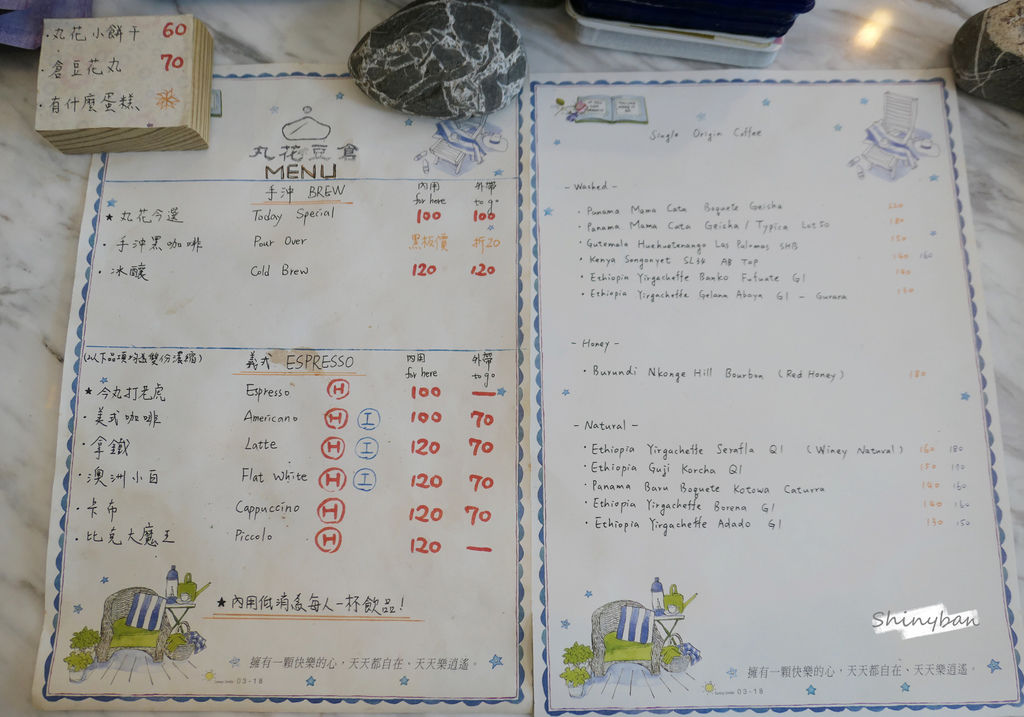 ·丸花小餅干 60
·倉豆花丸 70
·有什麼蛋糕
丸花豆倉
MENU
手沖 BREW 內用 for here 外帶 to go
★丸花今選 Today Special 100 100
·手沖黑咖啡 Pour Over 黑板價 折20
·冰釀 Cold Brew 120 120
(以下品項均為雙份濃縮) 義式 ESPRESSO 內用 for here 外帶 to go
★今丸打老虎 Espresso H 100 —
·美式咖啡 Americano H I 100 70
·拿鐵 Latte H I 120 70
·澳洲小白 Flat White H I 120 70
·卡布 Cappuccino H 120 70
·比克大魔王 Piccolo H 120 —
★內用低消為每人一杯飲品!
擁有一顆快樂的心,天天都自在、天天樂逍遙。
03-18
Single Origin Coffee
- Washed -
·Panama Mama Cata Boquete Geisha
·Panama Mama Cata Geisha / Typica Lot50 180
·Gutemala Huehuetenango Las Palomas SHB 150
·Kenya Songonyet SL34 AB Top 140 160
·Ethiopia Yirgacheffe Banko Futuute G1 140
·Ethiopia Yirgacheffe Gelana Abaya G1 - Gurara 130
- Honey -
·Burundi Nkonge Hill Bourbon (Red Honey) 180
- Natural -
·Ethiopia Yirgacheffe Serafla Q1 (Winey Natural) 160 180
·Ethiopia Guji Korcha Q1 150 170
·Panama Baru Boquete Kotowa Caturra 140 160
·Ethiopia Yirgacheffe Borena G1 140 160
·Ethiopia Yirgacheffe Adado G1 130 150
Shinyban
擁有一顆快樂的心,天天都自在、天天樂逍遙。
03-18